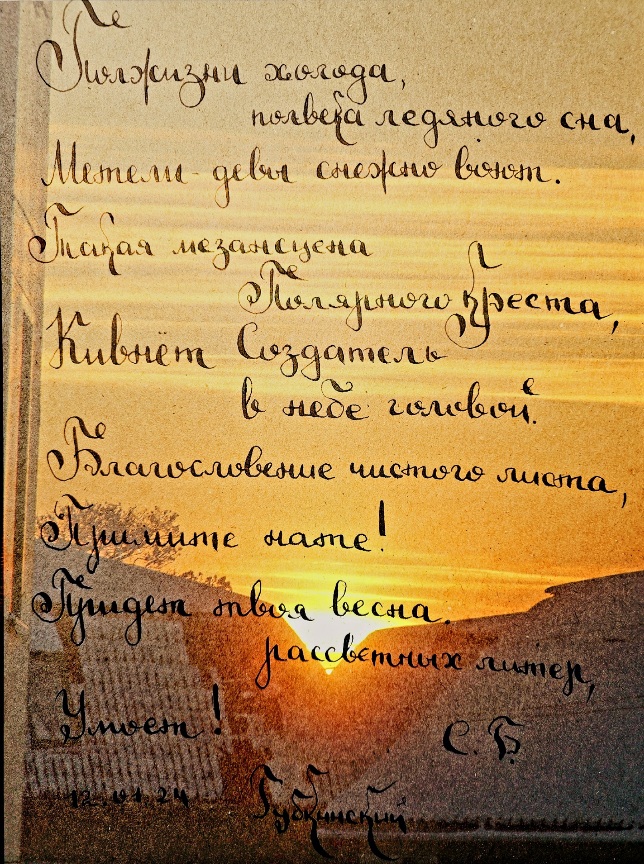 Полжизни холода,
полвека ледяного сна,
Метели-девы снежно воют.
Такая мезансцена
Полярного Креста,
Кивнёт Создатель
в небе головой.
Благословение чистого листа,
Примите нате!
Придет твоя весна.
рассветных литер,
Умоет!
С. Б.
12.01.24 Губкинский